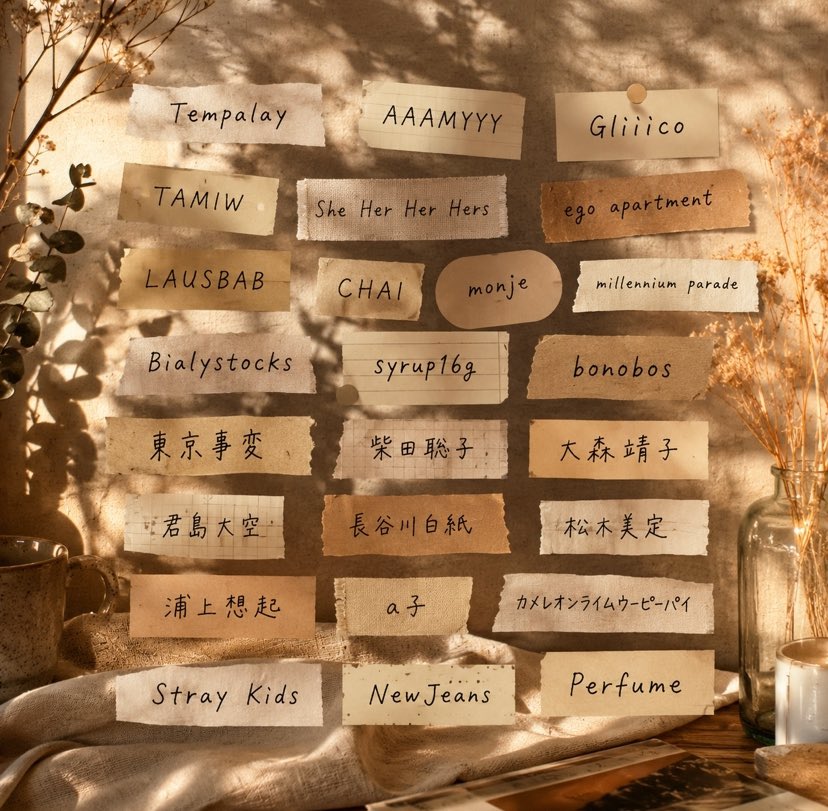 Tempalay
AAAMYYY
Gliiico
TAMIW
She Her Her Hers
ego apartment
LAUSBAB
CHAI
monje
millennium parade
Bialystocks
syrup16g
bonobos
東京事変
柴田聡子
大森靖子
君島大空
長谷川白紙
松木美定
浦上想起
a子
カメレオンライムウーピーパイ
Stray Kids
NewJeans
Perfume